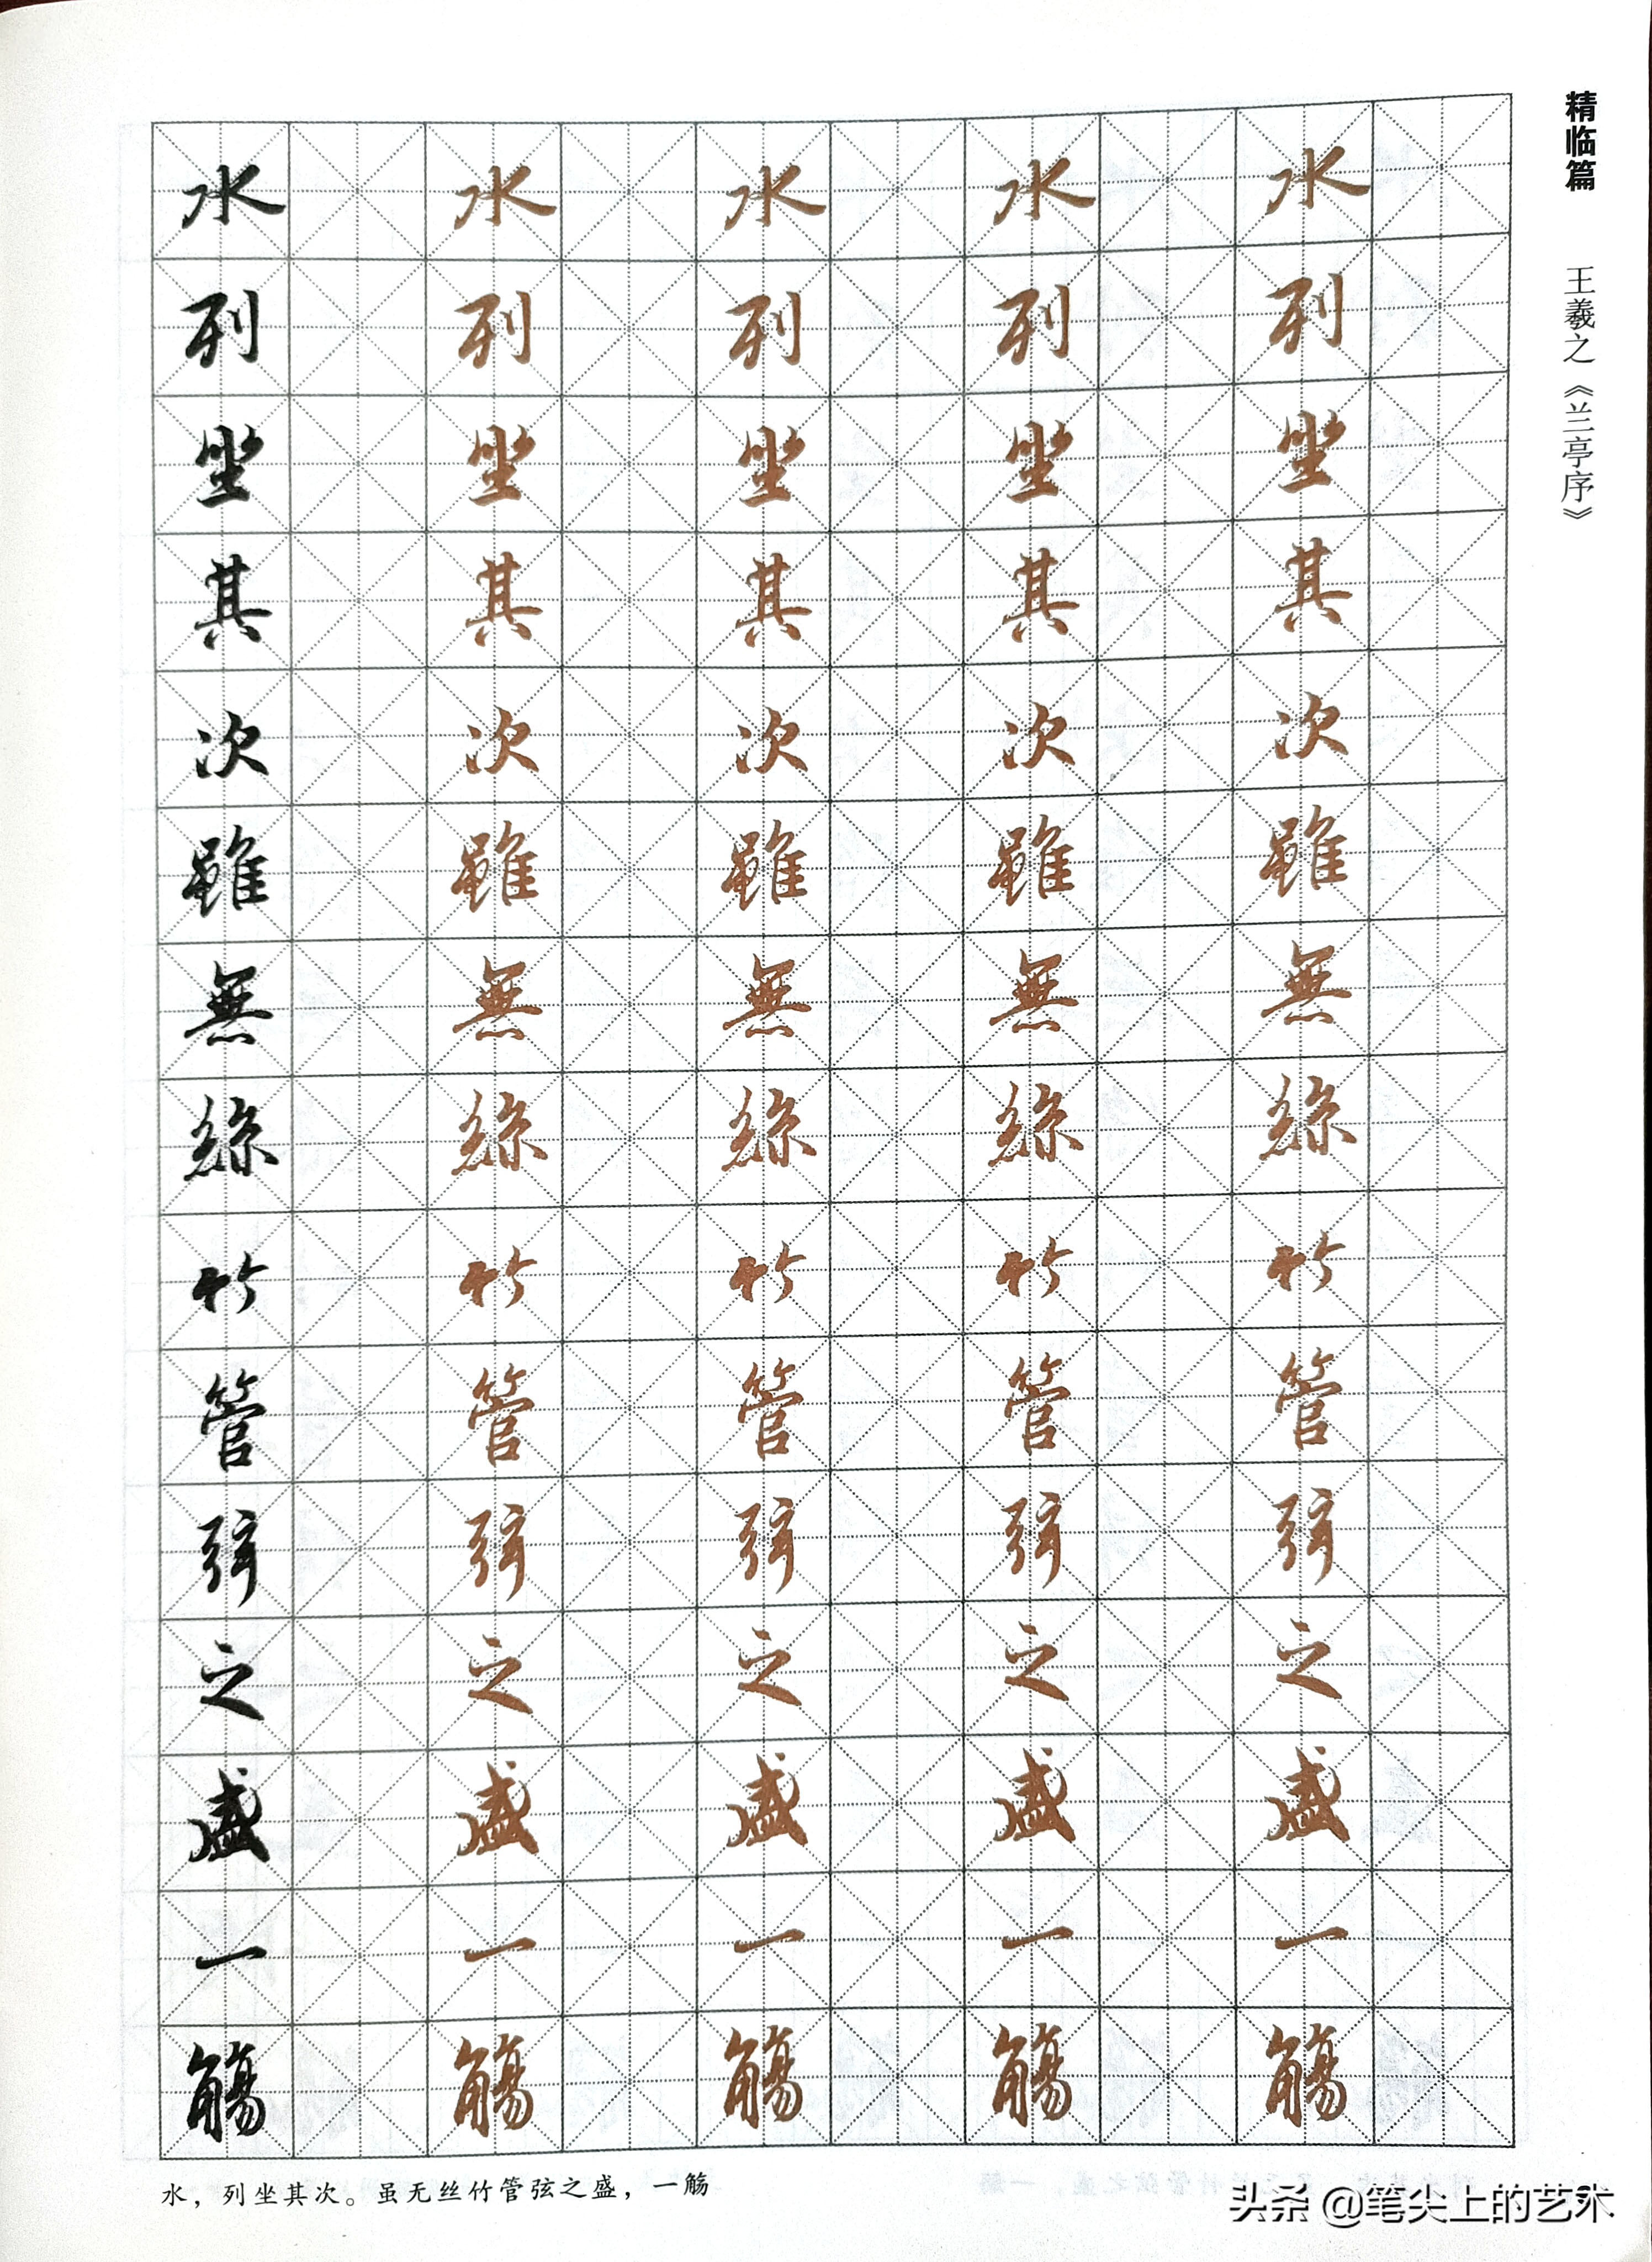 精临篇 王羲之《兰亭序》
水 水 水 水 水
列 列 列 列 列
坐 坐 坐 坐 坐
其 其 其 其 其
次 次 次 次 次
雖 雖 雖 雖 雖
無 無 無 無 無
絲 絲 絲 絲 絲
竹 竹 竹 竹 竹
管 管 管 管 管
弦 弦 弦 弦 弦
之 之 之 之 之
盛 盛 盛 盛 盛
一 一 一 一 一
觴 觴 觴 觴 觴
水，列坐其次。虽无丝竹管弦之盛，一觞
头条 @笔尖上的艺术